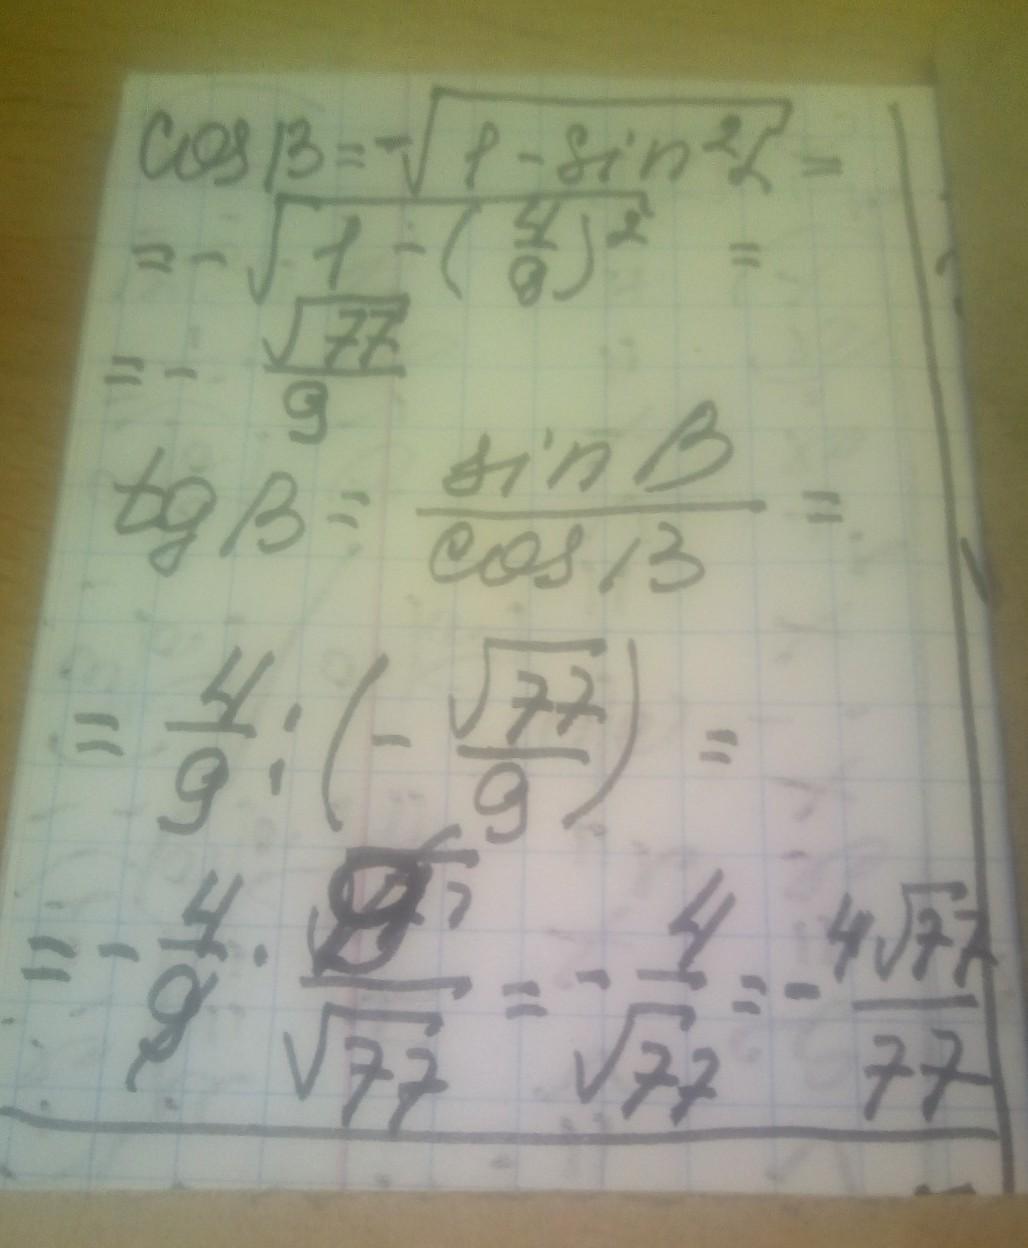 cos β = -√(1 - sin²α) =
= -√(1 - (4/9)²) =
= - √77/9
tg β = sin β / cos β =
= 4/9 : (- √77/9) =
= - 4/9 · 9/√77 = - 4/√77 = - 4√77/77